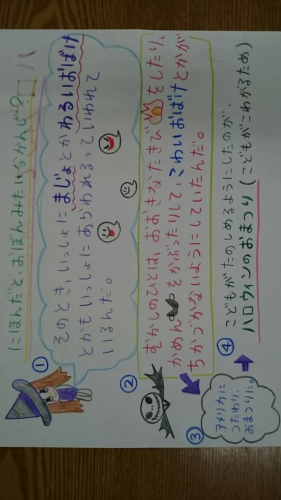 にほんだと、おぼんみたいなかんじ?
①
そのとき、いっしょにまじょとかわるいおばけ
とかもいっしょにあらわれるっていわれて
いるんだ。
②
むかしのひとは、おおきなたきびをしたり、
かめんをかぶったりして、こわいおばけとかが
ちかづかないようにしていたんだ。
③
アメリカに
つたわり、
おまつりに。
④
こどもがたのしめるようにしたのが、
ハロウィンのおまつり(こどもがこわがるため)